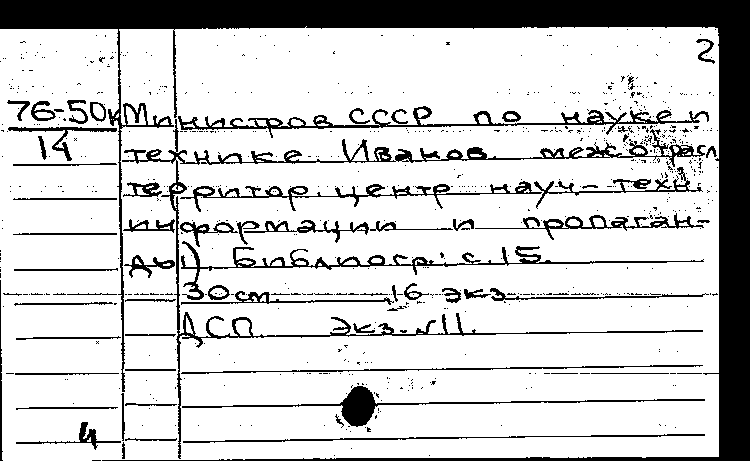 2
76-50к Министров СССР по науке и
14 технике. Иванов. межотрасл.
территор. центр науч-техн.
информации и пропаган-
ды). Библиогр.: с.15.
30см. 16 экз.
ДСП. Экз. №11.
4